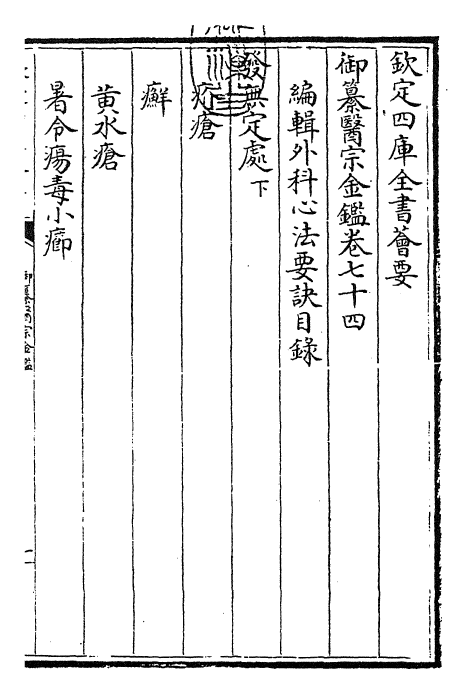 欽定四庫全書薈要
御纂醫宗金鑑卷七十四
編輯外科心法要訣目錄
發無定處下
疥瘡
癬
黃水瘡
暑令瘍毒小癤
御纂醫宗金鑑
一